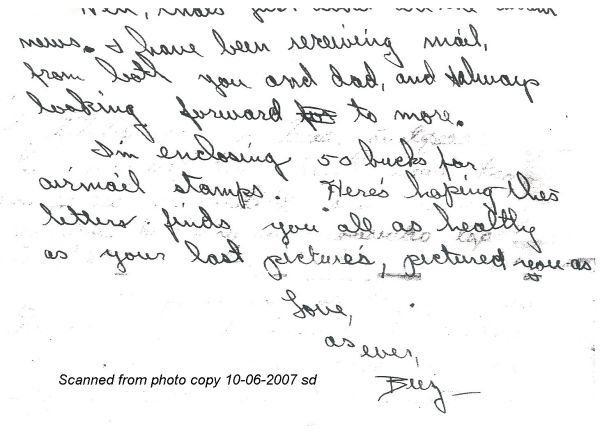 Well, that's just about all the
news. I have been receiving mail,
from both you and dad, and always
looking forward to more.
I'm enclosing 50 bucks for
airmail stamps. Here's hoping this
letter finds you all as healthy
as your last pictures, pictured you as
Love,
as ever,
Scanned from photo copy 10-06-2007 sd